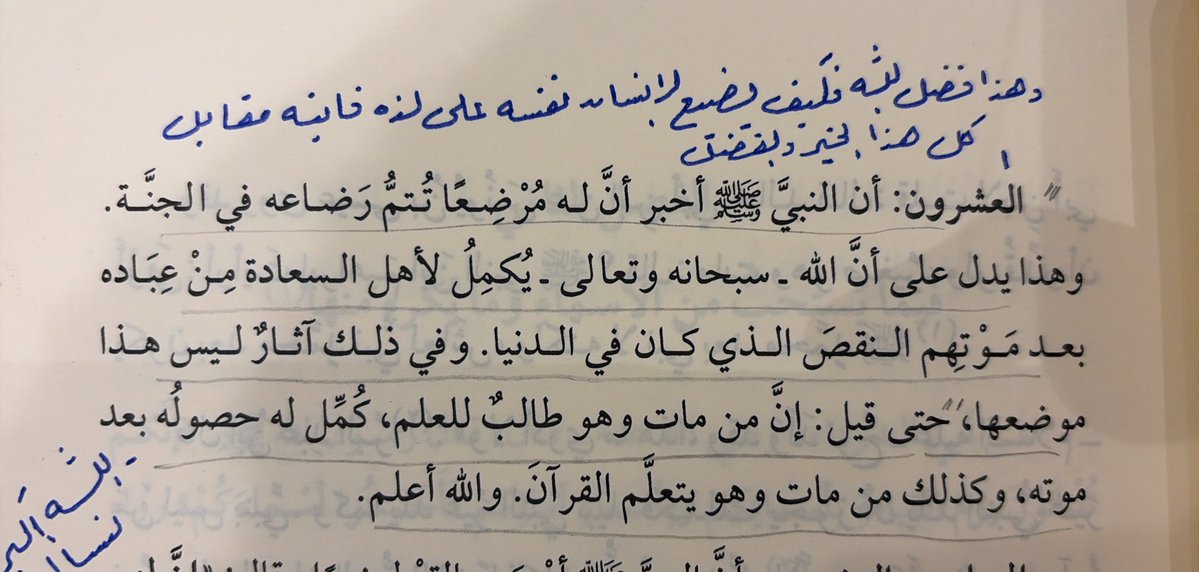 وهذا فضل الله فكيف يضيع الإنسان نفسه على لذه فانيه مقابل
كل هذا الخير والفضل
العشرون: أن النبيَّ ﷺ أخبر أنَّ له مُرْضِعًا تُتمُّ رَضاعه في الجنَّة.
وهذا يدل على أنَّ الله ـ سبحانه وتعالى ـ يُكمِلُ لأهل السعادة مِنْ عِبَاده
بعد مَوْتِهم النقصَ الذي كان في الدنيا. وفي ذلك آثارٌ ليس هذا
موضعها، حتى قيل: إنَّ من مات وهو طالبٌ للعلم، كُمِّل له حصولُه بعد
موته، وكذلك من مات وهو يتعلَّم القرآنَ. والله أعلم.
الله أكبر